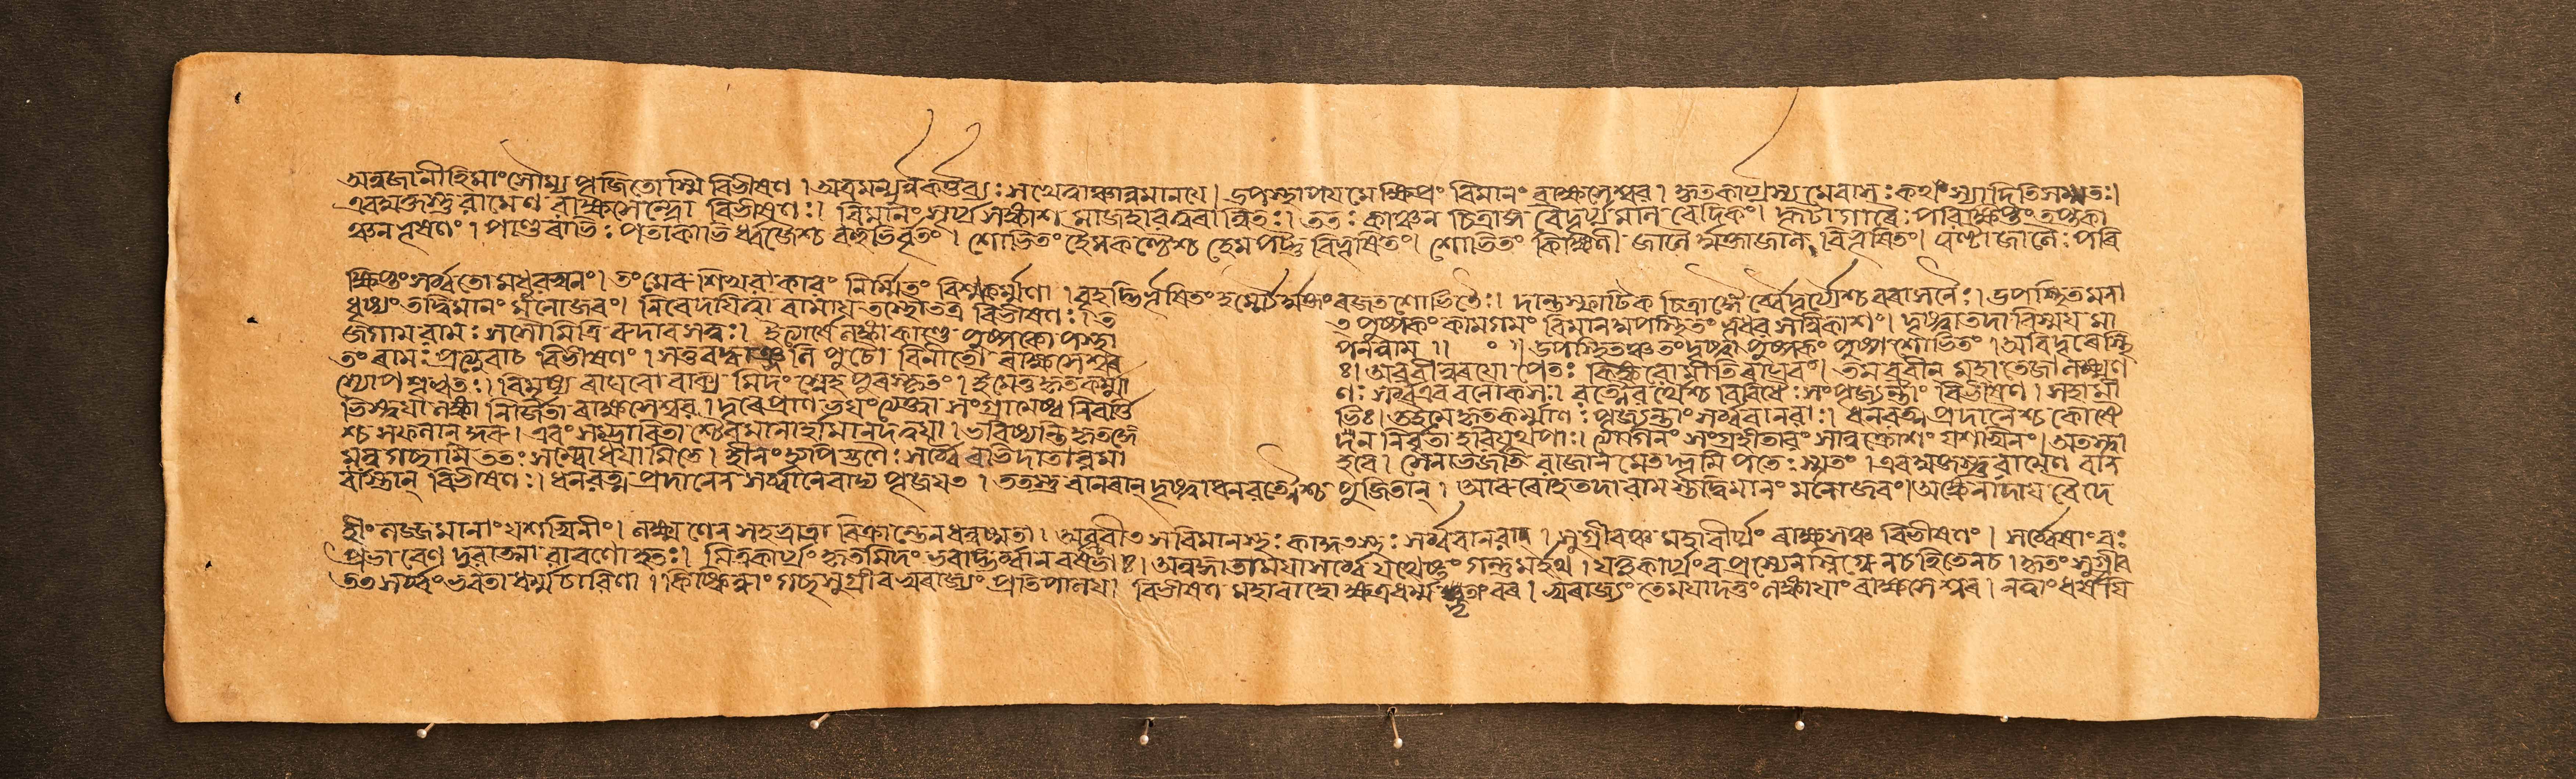 অনুজানীহি মাং সৌম্য পূজিতোস্মি বিভীষণ । মন্যুর্নকর্ত্তব্য: সখে ত্বাঞ্চানুমানয়ে । উপস্থাপয় মে ক্ষিপ্রং বিমানং ৰাক্ষসেশ্বর । কৃতকার্য্যস্য মে বাস: কথং স্যাদিতি সম্মত: ।
এবমুক্তস্তু রামেণ ৰাক্ষসেন্দ্রো বিভীষণ: । বিমানং সূর্য্যসঙ্কাশমাজহার ত্বরান্বিত: । তত: কাঞ্চন চিত্রাঙ্গ বৈদূর্য্যমনি বেদিকং । কূটাগারৈ: পরিক্ষিপ্তং তপ্তকা
ঞ্চন ভূষণং । পাণ্ডুৰাভি: পতাকাভি ধ্বজৈশ্চ বহুভির্বৃতং । শোভিতং হেমকক্ষ্যৈশ্চ হেমপদ্ম বিভূষিতং । শোভিতং কিঙ্কিণী জালৈ র্মুক্তাজাল বিভূষিতং । ঘণ্টাজালৈ: পৰি
ক্ষিপ্তং সর্ব্বতো মধুরস্বনং । তং মেৰু শিখরাকারং নির্ম্মিতং বিশ্বকর্ম্মণা । বৃহদ্ভির্ভূষিতং হর্ম্ম্যৈর্মুক্তা রজতশোভিতৈ: । দান্তস্ফাটিক চিত্রাঙ্গৈ র্বৈদূর্য্যৈশ্চ বরাসনৈ: । উপস্থিতমনা
ধৃষ্যং তদ্বিমানং মনোজবং । নিবেদয়িত্বা ৰামায় তস্থৌ তত্র বিভীষণ: । ত
ত পুষ্পকং কামগমং বিমানমুপস্থিতং ভূধর সন্নিকাশং । দৃষ্ট্বা তদা বিস্ময় মা
জগাম রাম: সসৌমিত্রি ৰুদাৰসত্ত্ব: । ইত্যার্ষে লঙ্কাকাণ্ডে পুষ্পকোপস্থা
পনন্নাম ॥ ০ ॥ উপস্থিতঞ্চ তং দৃষ্ট্বা পুষ্পকং পুষ্প শোভিতং । অবিদূৰে স্থি
তং ৰাম: প্রত্যুবাচ বিভীষণং । বিনীতো ৰাক্ষসেশ্বৰ
: । অব্রবীত্ত্বরয়োপেত: কিঙ্করোমীতি ৰাঘবং । তমব্রবীন্ মহাতেজা লক্ষ্মণ
স্যোপশৃণ্বত: । বিমৃষ্য ৰাঘবো বাক্য মিদং স্নেহ পুৰস্কৃতং । ইমে তু কৃতকর্ম্মা
ণ: সর্ব্ব এব বনৌকস: । রত্নৈরর্থৈশ্চ বিবিধৈ: সংপূজ্যন্তাং বিভীষণ । সহামী
ভিস্ত্বয়া লঙ্কা নির্জিতা ৰাক্ষসেশ্বর । দূৰে প্রাণ ভয়ং ত্যক্ত্বা সংগ্রামেষ্ব নিবর্ত্তি
ভি: । তইমে কৃতকর্ম্মাণ: পূজ্যন্তাং সর্ব্ববানরা: । ধনরত্ন প্রদানৈশ্চ
শ্চ সফলান্ কুরু । এবং সম্মানিতা শ্চৈব মানার্হা মানদ ত্বয়া । ভবিষ্যন্তি কৃতজ্ঞে
ন নির্বৃতা হরিযূথপা: । ত্যাগিনং সংগ্রহীতারং সানুক্রোশং যশস্বিনং । অতস্ত্বা
মনুগচ্ছামি তত: সম্বোধয়ামি তে । হীনং গুণৈ: সর্ব্বৈ ৰভিদাতাৰমা
হবে । সেনা ত্যজতি রাজানমেতদ্ভূমি পতে: স্মৃতং । এবমুক্তস্তু রামেণ বান
ৰাংস্তান্ বিভীষণ: । ধনরত্ন প্রদানেন সর্ব্বানেবাভ্য পূজয়ত । ততস্তু বানৰান্ দৃষ্ট্বা ধনরত্নৈশ্চ পূজিতান্ । আৰুৰোহ তদা রাম স্তদ্বিমানং মনোজবং । অঙ্কেনাদায় বৈদে
হীং লজ্জমানাং যশস্বিনীং । লক্ষ্মণেন সহ ভ্রাত্রা বিক্রান্তেন ধনুষ্মতা । অব্রবীচ্চ স বিমানস্থ: কাকুৎস্থ: সর্ব্ববানরান্ । সুগ্রীবঞ্চ মহাবীর্য্যং ৰাক্ষসঞ্চ বিভীষণং । সর্ব্বেষাং ব:
প্রভাবেণ দুরাত্মা রাবণো হত: । মিত্রকার্য্যং কৃতমিদং ভবদ্ভি র্বানরর্ষভা: । অনুজ্ঞাতা ময়া সর্ব্বে যথেষ্টং গন্তুমর্হথ । যত্তু কার্য্যং বয়স্যেন স্নিগ্ধেন চ হিতেন চ । কৃতং সুগ্রীব
তৎ সর্ব্বং ভবতা ধর্ম্মচারিণা । কিষ্কিন্ধ্যাং গচ্ছ সুগ্রীব স্বরাজ্যং প্রতিপালয় । বিভীষণ মহাবাহো ক্ষত্রধর্ম্ম । স্বরাজ্যং তে ময়া দত্তং লঙ্কায়াং ৰাক্ষসেশ্বৰ । নত্বাং ধর্ষয়ি